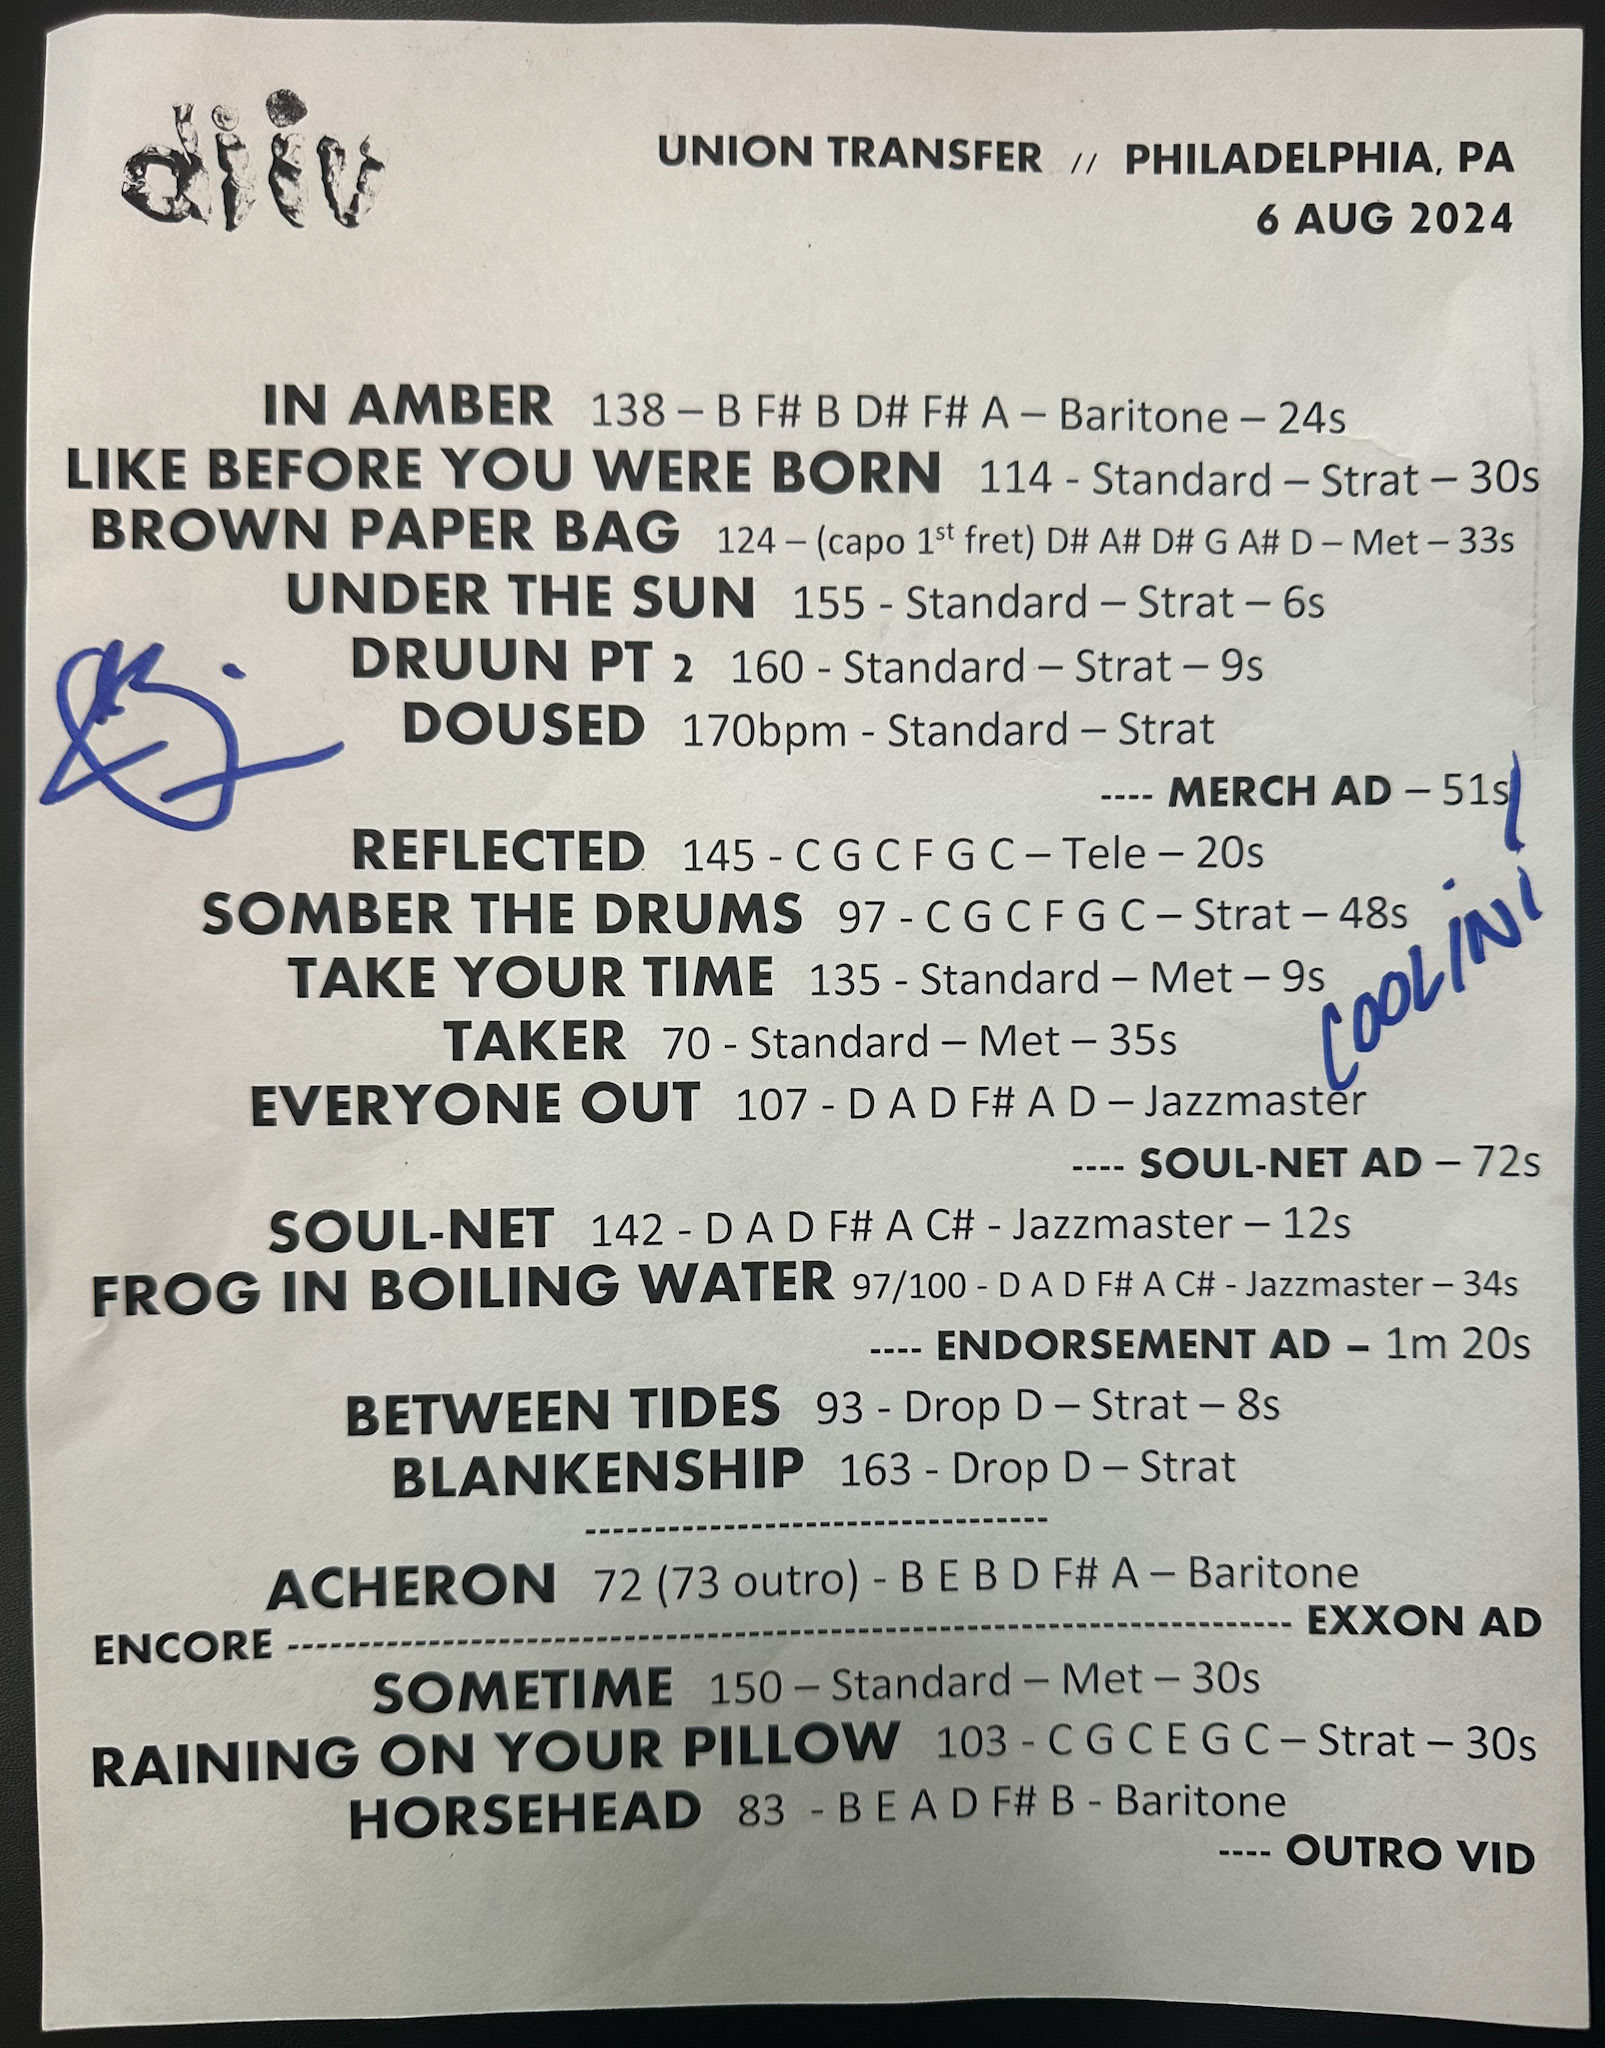 diiv
UNION TRANSFER // PHILADELPHIA, PA
6 AUG 2024
IN AMBER 138 – B F# B D# F# A – Baritone – 24s
LIKE BEFORE YOU WERE BORN 114 - Standard – Strat – 30s
BROWN PAPER BAG 124 – (capo 1st fret) D# A# D# G A# D – Met – 33s
UNDER THE SUN 155 - Standard – Strat – 6s
DRUUN PT 2 160 - Standard – Strat – 9s
DOUSED 170bpm - Standard – Strat
---- MERCH AD – 51s
REFLECTED 145 - C G C F G C – Tele – 20s
SOMBER THE DRUMS 97 - C G C F G C – Strat – 48s
TAKE YOUR TIME 135 - Standard – Met – 9s
COOLIN'!
TAKER 70 - Standard – Met – 35s
EVERYONE OUT 107 - D A D F# A D – Jazzmaster
---- SOUL-NET AD – 72s
SOUL-NET 142 - D A D F# A C# - Jazzmaster – 12s
FROG IN BOILING WATER 97/100 - D A D F# A C# - Jazzmaster – 34s
---- ENDORSEMENT AD – 1m 20s
BETWEEN TIDES 93 - Drop D – Strat – 8s
BLANKENSHIP 163 - Drop D – Strat
---------------------------------
ACHERON 72 (73 outro) - B E B D F# A – Baritone
ENCORE ------------------------------------------------------------------------ EXXON AD
SOMETIME 150 – Standard – Met – 30s
RAINING ON YOUR PILLOW 103 - C G C E G C – Strat – 30s
HORSEHEAD 83 - B E A D F# B - Baritone
---- OUTRO VID